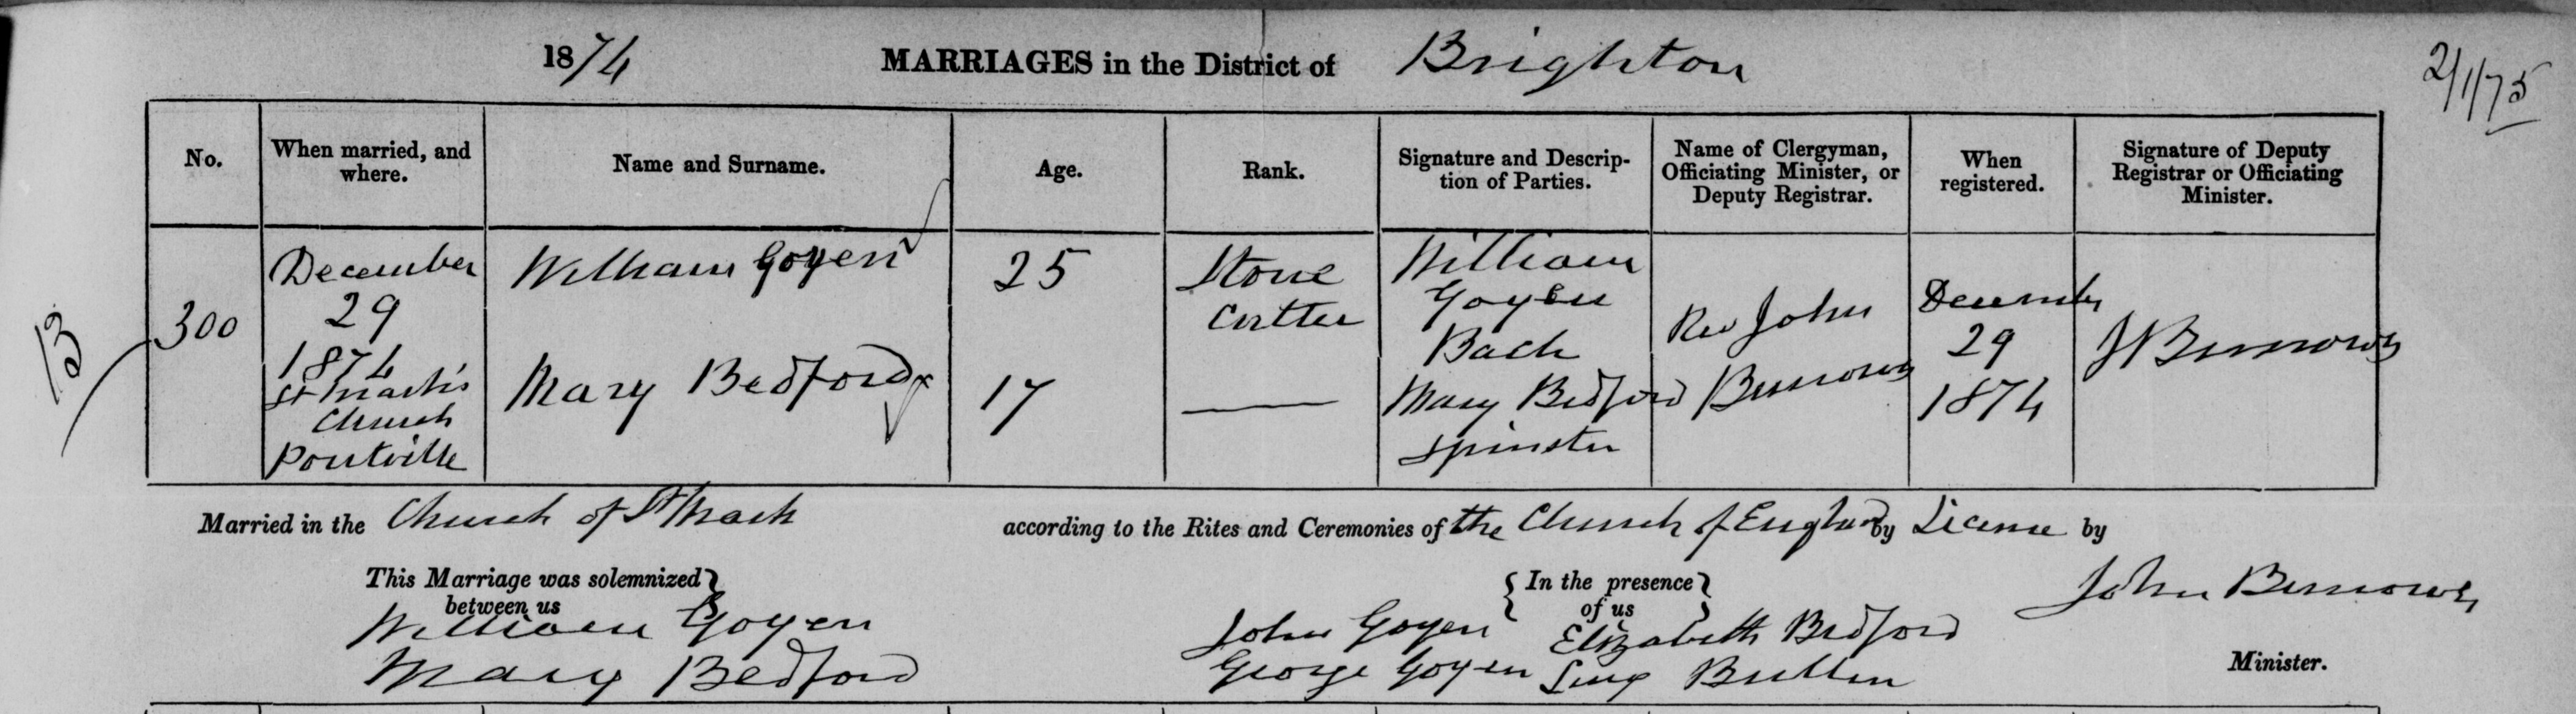 1874 MARRIAGES in the District of Brighton
2/1/75
No. When married, and where. Name and Surname. Age. Rank. Signature and Description of Parties. Name of Clergyman, Officiating Minister, or Deputy Registrar. When registered. Signature of Deputy Registrar or Officiating Minister.
13
300
December
29
1874
St Mark's
Church
Pontville
William Goyen
Mary Bedford
25
17
Stone
Cutter
William
Goyen
Bach
Mary Bedford
Spinster
Rev John
Burrows
December
29
1874
J Burrows
Married in the Church of St Mark according to the Rites and Ceremonies of the Church of England by License by
This Marriage was solemnized between us
William Goyen
Mary Bedford
In the presence of us
John Goyen Elizabeth Bedford
George Goyen Butler
John Burrows
Minister.